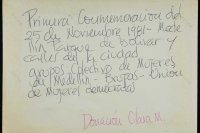 Primera Conmemoración del
25 de Noviembre 1981 - Mede
llín Parque de Bolívar y
calles de la ciudad
Grupos Colectivo de Mujeres
de Medellín - Brujas - Unión
de Mujeres demócratas
Donación Clara M.